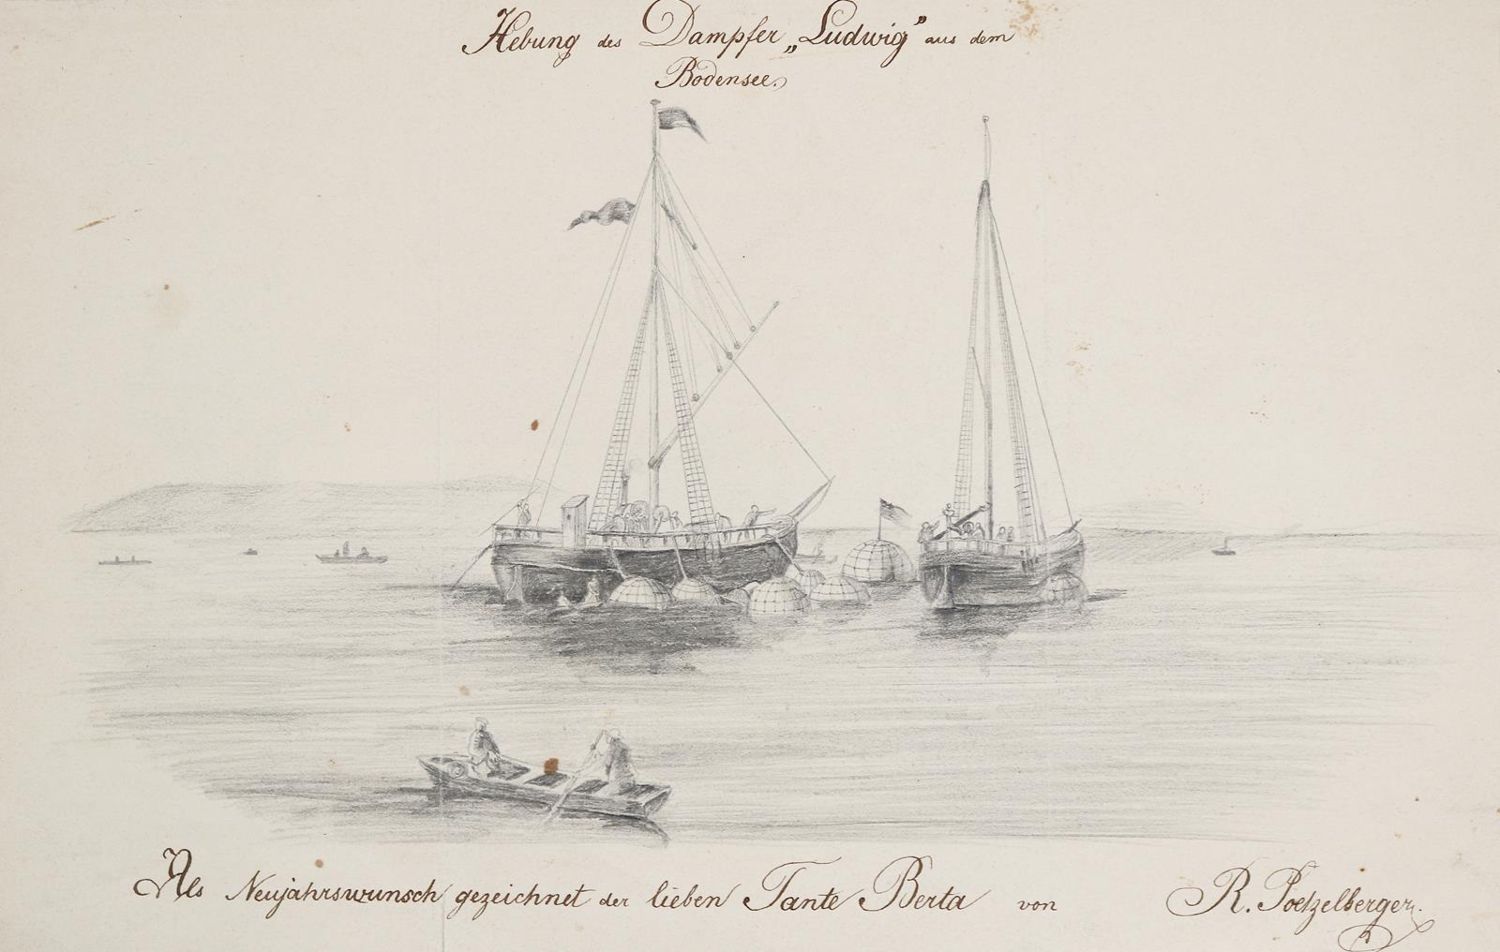 Hebung des Dampfer „Ludwig” aus dem
Bodensee.
Als Neujahrswunsch gezeichnet der lieben Tante Berta von R. Poetzelberger.